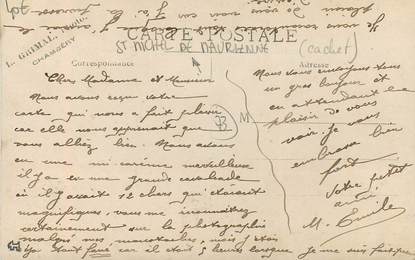 L. GRIMAL, Photo.
CHAMBÉRY
CARTE POSTALE
ST MICHEL DE MAURIENNE
(cachet)
Correspondance
Adresse
Cher Madame et Monsieur
Nous avons reçu votre
carte qui nous a fait plaisir
car elle nous apprenait que
vous alliez bien. Nous avons
eu une mi-carême merveilleuse
il y a eu une grande cavalcade
où il y avait 12 chars qui étaient
magnifiques, vous me reconnaîtrez
certainement sur la photographie
malgré mes moustaches, mais j'étais
car il était 5 heures lorsque je me suis
73
M
Nous vous embrassons tous
un gros
en attendant le
plaisir de vous
voir je vous
embrasse bien
fort
Votre petit
ami
M. Emile